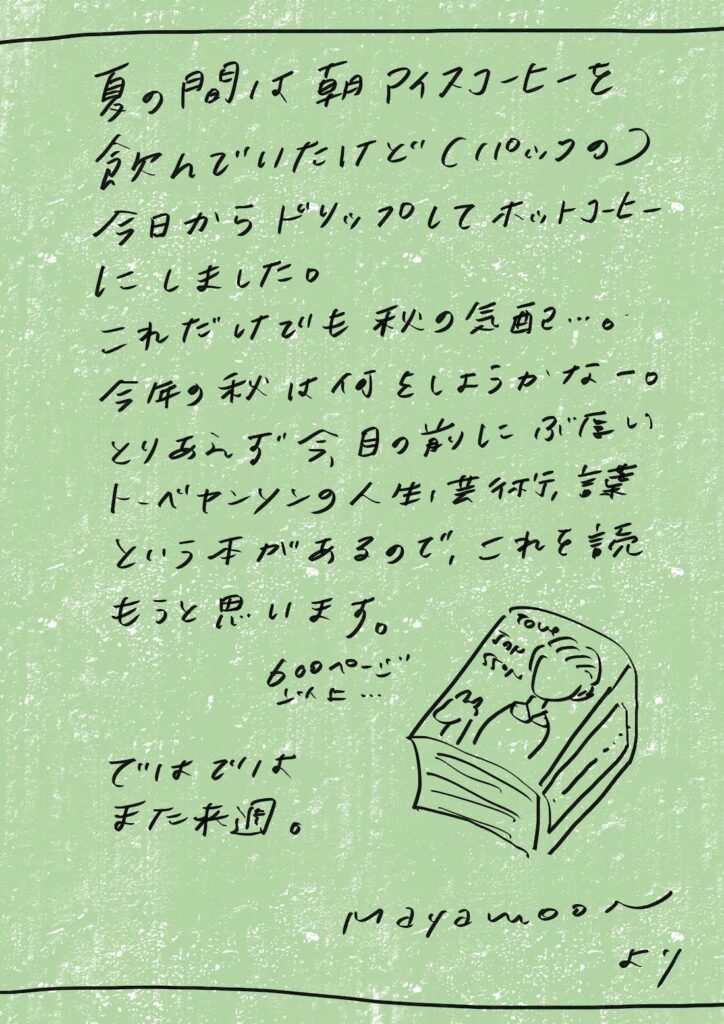 夏の間は朝アイスコーヒーを
飲んでいたけど(パックの)
今日からドリップしてホットコーヒー
にしました。
これだけでも秋の気配…。
今年の秋は何をしようかなー。
とりあえず今、目の前にぶ厚い
トーベヤンソンの人生、芸術、言葉
という本があるので、これを読
もうと思います。
600ページ
以上…
TOVE
JAN
SSON
ではでは
また来週。
mayamoon
より